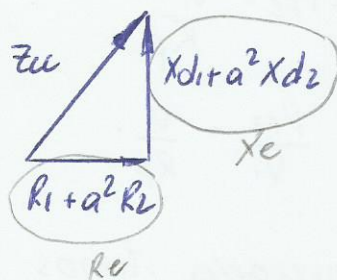 Zu
Xd1+a²Xd2
Xe
R1+a²R2
Re